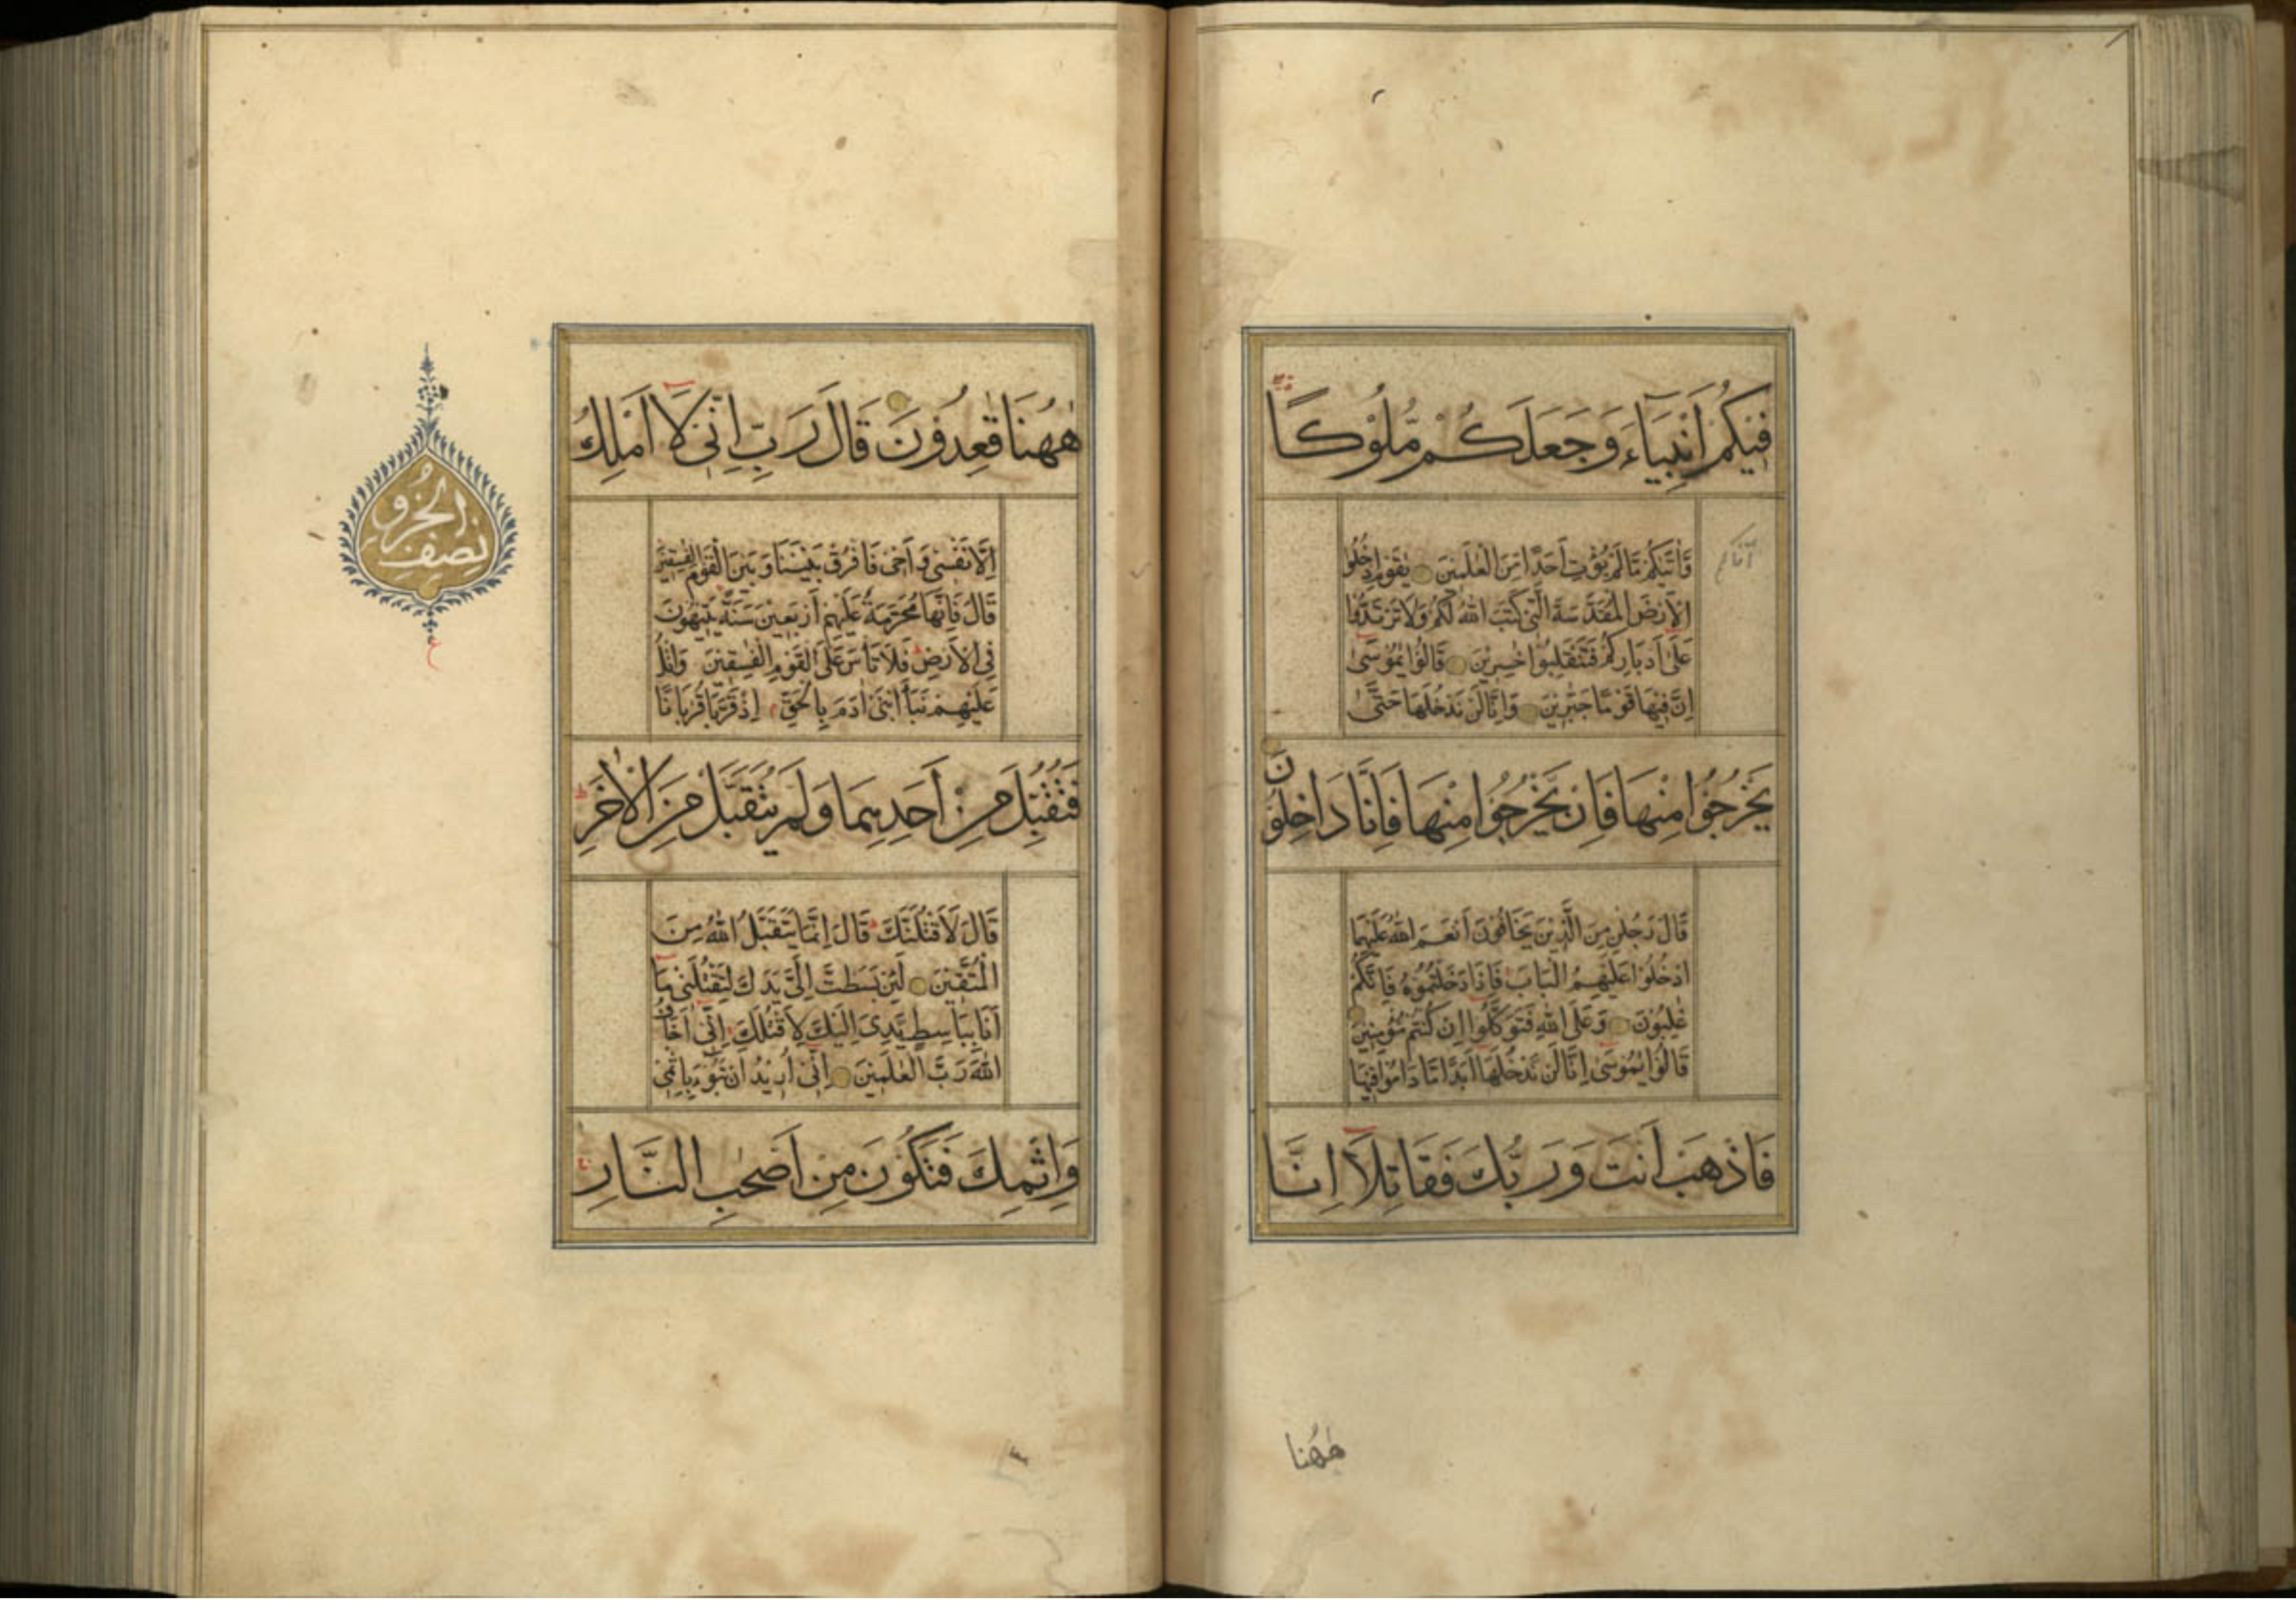 فِيكُمْ أَنْبِيَاءَ وَجَعَلَكُمْ مُلُوكًا
وَآتٰيكُمْ مَّا لَمْ يُؤْتِ اَحَدًا مِنَ الْعٰلَمِينَ يٰقَوْمِ ادْخُلُوا
الْاَرْضَ الْمُقَدَّسَةَ الَّتِي كَتَبَ اللّٰهُ لَكُمْ وَلَا تَرْتَدُّوا
عَلٰى اَدْبَارِكُمْ فَتَنْقَلِبُوا خٰسِرِينَ قَالُوا يٰمُوسٰى
اِنَّ فِيهَا قَوْمًا جَبَّرِينَ وَاِنَّا لَنْ نَدْخُلَهَا حَتّٰى
يَخْرُجُوا مِنْهَا فَاِنْ يَخْرُجُوا مِنْهَا فَاِنَّا دَاخِلُونَ
قَالَ رَجُلٰنِ مِنَ الَّذِينَ يَخَافُونَ اَنْعَمَ اللّٰهُ عَلَيْهِمَا
ادْخُلُوا عَلَيْهِمُ الْبَابَ فَاِذَا دَخَلْتُمُوهُ فَاِنَّكُمْ
غٰلِبُونَ وَعَلَى اللّٰهِ فَتَوَكَّلُوا اِنْ كُنْتُمْ مُّؤْمِنِينَ
قَالُوا يٰمُوسٰى اِنَّا لَنْ نَّدْخُلَهَا اَبَدًا مَّا دَامُوا فِيهَا
فَاذْهَبْ اَنْتَ وَرَبُّكَ فَقَاتِلَا اِنَّا
هٰهُنا
هٰهُنَا قٰعِدُونَ قَالَ رَبِّ اِنِّى لَا اَمْلِكُ
اِلَّا نَفْسِى وَاَخِى فَافْرُقْ بَيْنَنَا وَبَيْنَ الْقَوْمِ الْفٰسِقِينَ
قَالَ فَاِنَّهَا مُحَرَّمَةٌ عَلَيْهِمْ اَرْبَعِينَ سَنَةً يَتِيهُونَ
فِى الْاَرْضِ فَلَا تَأْسَ عَلَى الْقَوْمِ الْفٰسِقِينَ وَاتْلُ
عَلَيْهِمْ نَبَاَ ابْنَىْ اٰدَمَ بِالْحَقِّ اِذْ قَرَّبَا قُرْبَانًا
فَتُقُبِّلَ مِنْ اَحَدِهِمَا وَلَمْ يُتَقَبَّلْ مِنَ الْاٰخَرِ
قَالَ لَاَقْتُلَنَّكَ قَالَ اِنَّمَا يَتَقَبَّلُ اللّٰهُ مِنَ
الْمُتَّقِينَ لَئِنْ بَسَطْتَ اِلَىَّ يَدَكَ لِتَقْتُلَنِى مَا
اَنَا بِبَاسِطٍ يَّدِىَ اِلَيْكَ لِاَقْتُلَكَ اِنِّى اَخَافُ
اللّٰهَ رَبَّ الْعٰلَمِينَ اِنِّى اُرِيدُ اَنْ تَبُوْءَ بِاِثْمِى
وَاِثْمِكَ فَتَكُونَ مِنْ اَصْحٰبِ النَّارِ
نصف الحزب